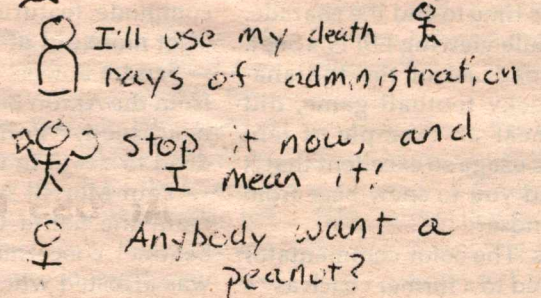 I'll use my death
rays of administration
stop it now, and
I mean it!
Anybody want a
peanut?